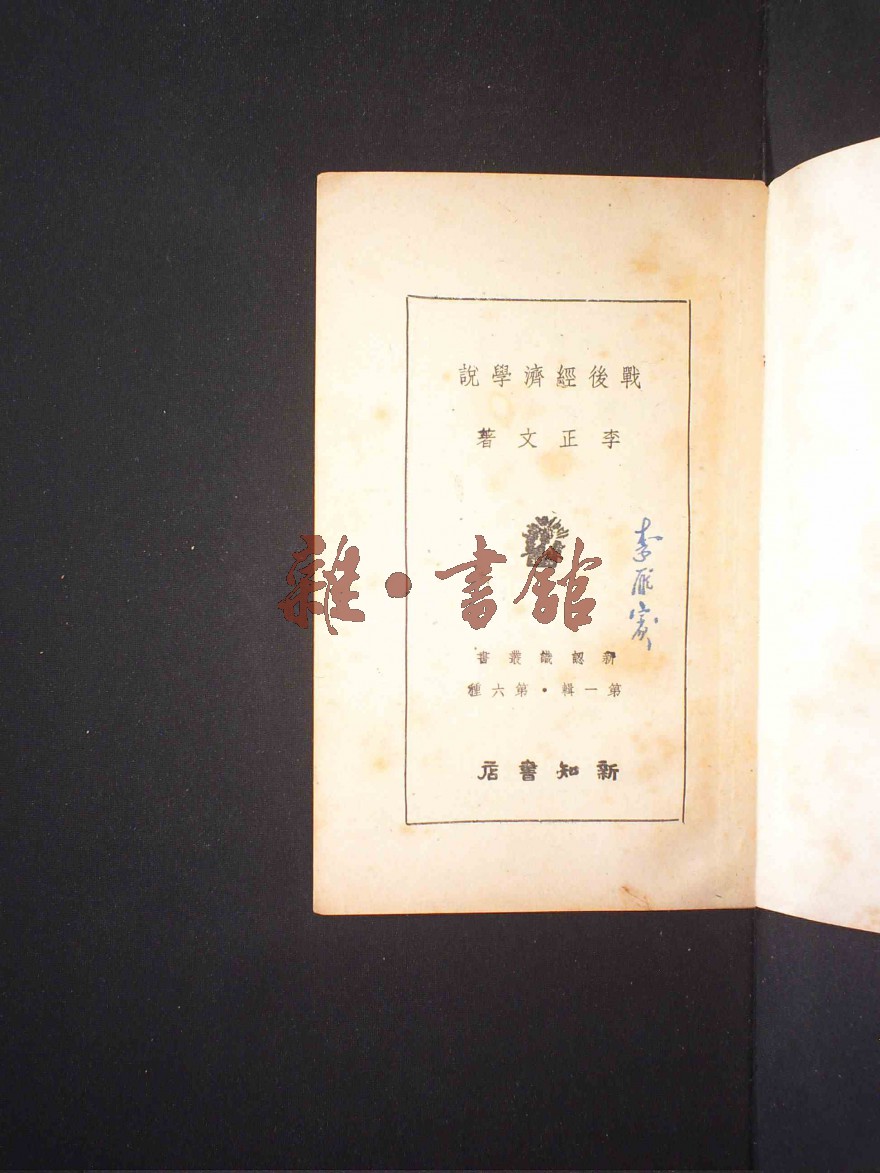 戰後經濟學說
李正文著
雜·書館
新認識叢書
第一輯·第六種
新知書店